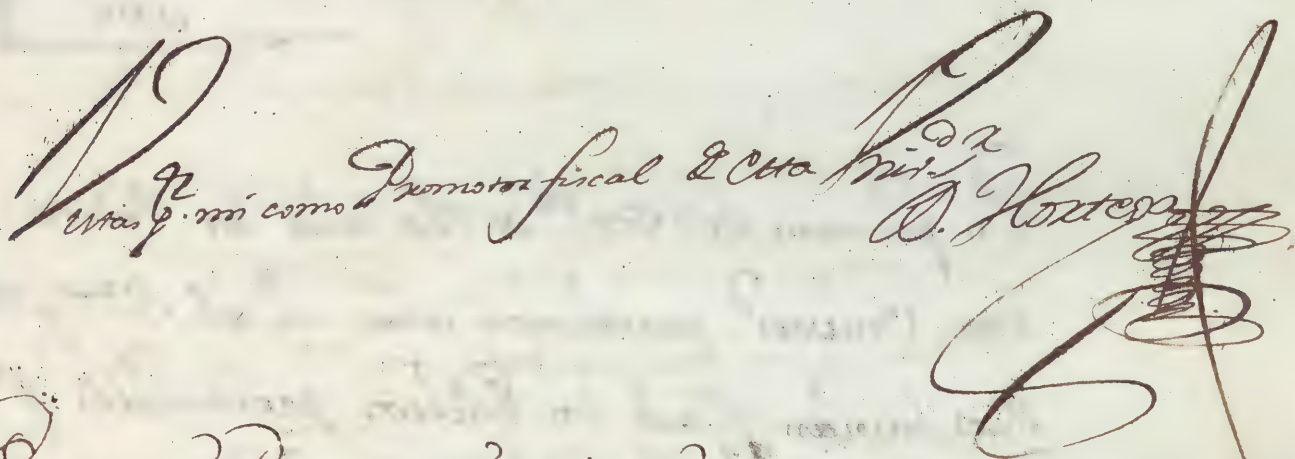 Vistas pr. mi como Promotor fiscal de Esta Univdd
D. Hortega